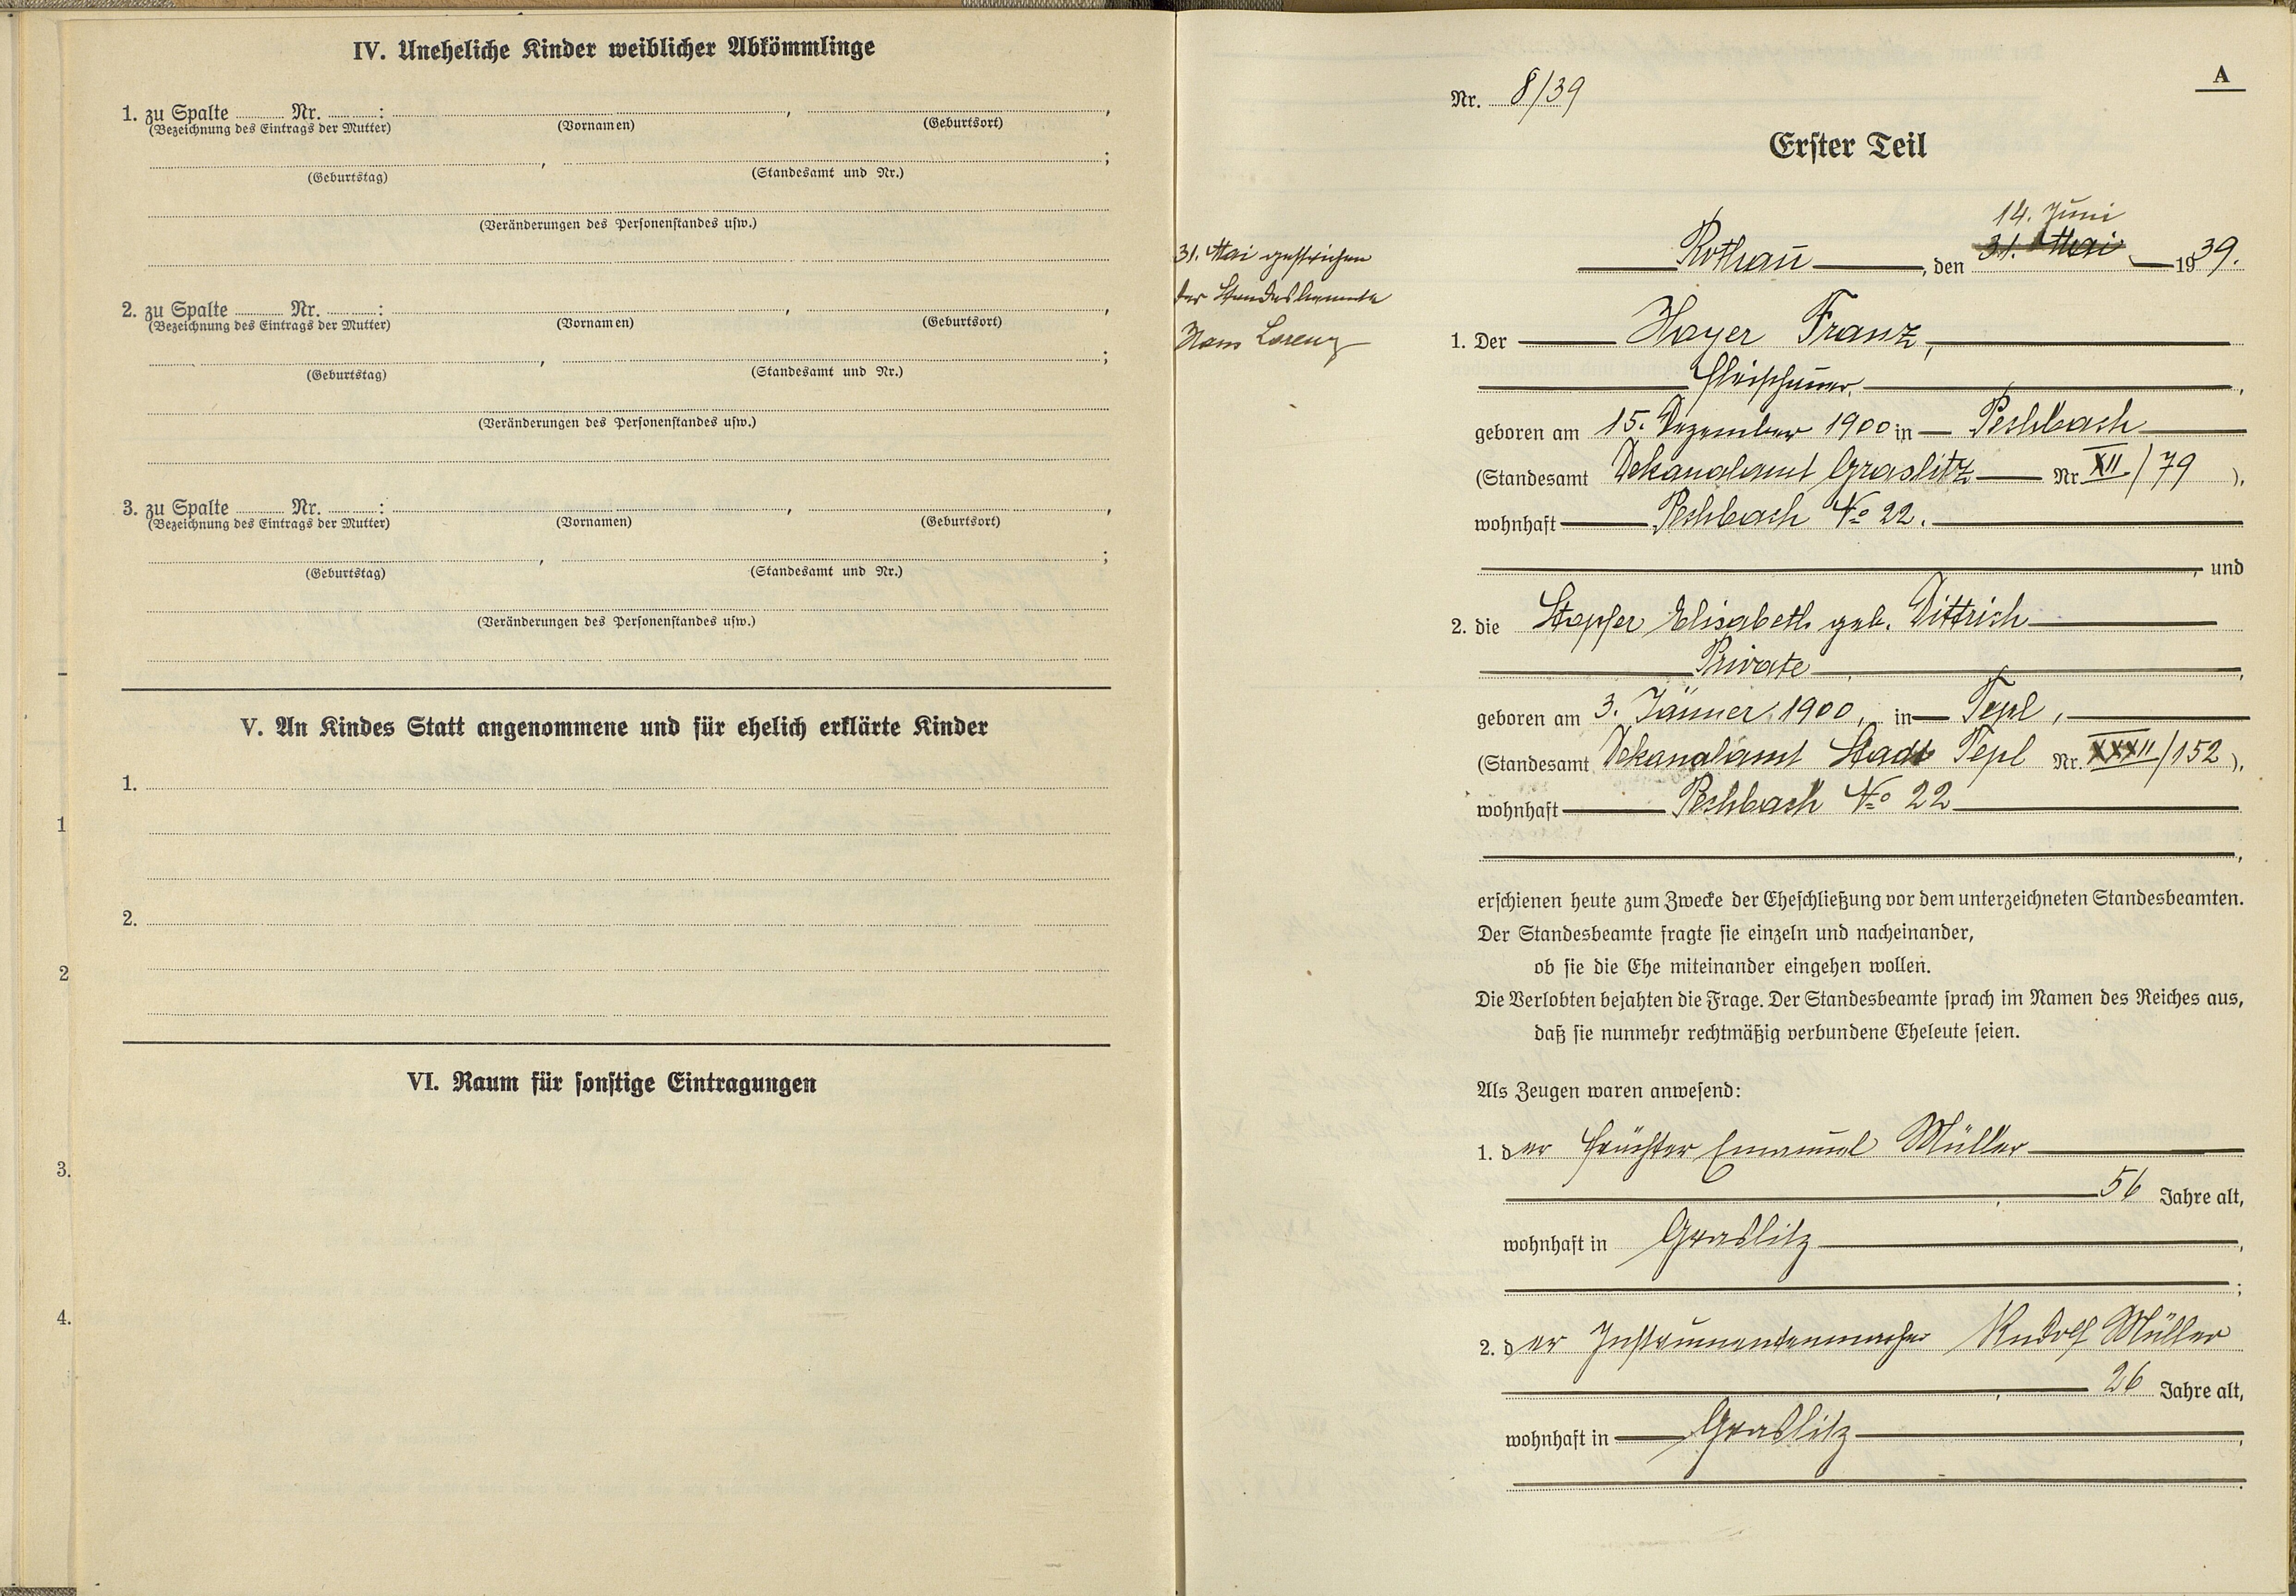 IV. Uneheliche Kinder weiblicher Abkömmlinge
1. zu Spalte ........ Nr. ........:
(Bezeichnung des Eintrags der Mutter) (Vornamen) (Geburtsort)
(Geburtstag) (Standesamt und Nr.)
(Veränderungen des Personenstandes usw.)
2. zu Spalte ........ Nr. ........:
(Bezeichnung des Eintrags der Mutter) (Vornamen) (Geburtsort)
(Geburtstag) (Standesamt und Nr.)
(Veränderungen des Personenstandes usw.)
3. zu Spalte ........ Nr. ........:
(Bezeichnung des Eintrags der Mutter) (Vornamen) (Geburtsort)
(Geburtstag) (Standesamt und Nr.)
(Veränderungen des Personenstandes usw.)
V. An Kindes Statt angenommene und für ehelich erklärte Kinder
1.
2.
VI. Raum für sonstige Eintragungen
1
2
3.
4.
A
Nr. 8/39
Erster Teil
14. Juni
Rothau, den 31. Mai 1939.
31. Mai gestrichen
der Standesbeamte
Hans Lorenz
1. Der Hoyer Franz,
Fleischhauer,
geboren am 15. Dezember 1900 in Pechbach
(Standesamt Dekanalamt Graslitz Nr. XII/79),
wohnhaft Pechbach No 22.
, und
2. die Stopfer Elisabeth geb. Dittrich
Private,
geboren am 3. Jänner 1900, in Tepl,
(Standesamt Dekanalamt Stadt Tepl Nr. XXXII/152),
wohnhaft Pechbach No 22
erschienen heute zum Zwecke der Eheschließung vor dem unterzeichneten Standesbeamten.
Der Standesbeamte fragte sie einzeln und nacheinander,
ob sie die Ehe miteinander eingehen wollen.
Die Verlobten bejahten die Frage. Der Standesbeamte sprach im Namen des Reiches aus,
daß sie nunmehr rechtmäßig verbundene Eheleute seien.
Als Zeugen waren anwesend:
1. der Emanuel Müller
56 Jahre alt,
wohnhaft in Graslitz,
2. der Instrumentenmacher Rudolf Müller
26 Jahre alt,
wohnhaft in Graslitz,